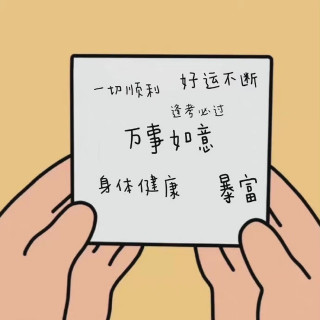 一切顺利 好运不断
逢考必过
万事如意
身体健康 暴富